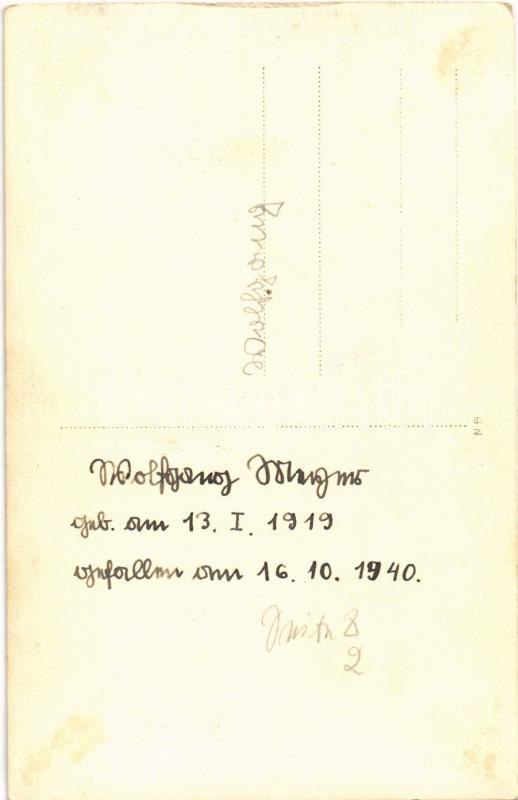 Wolfgang
NR
Wolfgang Meyer
geb. am 13. I. 1919
gefallen am 16. 10. 1940.
8
2